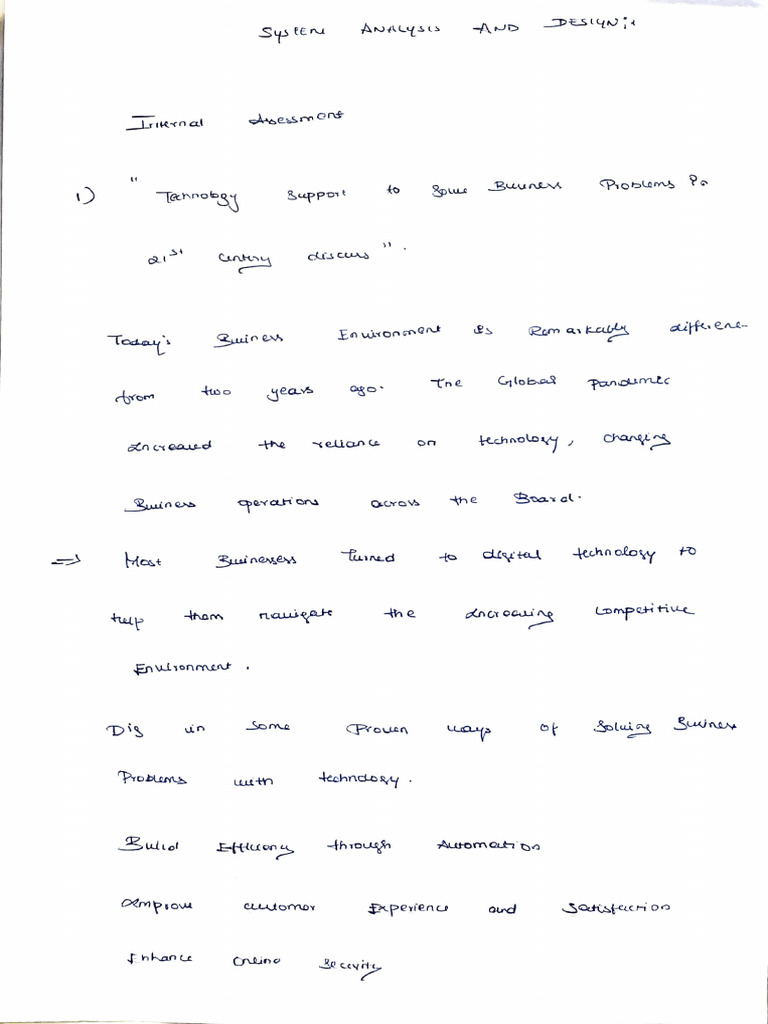 SYSTEM ANALYSIS AND DESIGN:
Internal Assessment
1) " Technology support to solve Business Problems in
21st century discuss ".
Today's Business Environment is Remarkably different
from two years ago. The Global Pandemic
increased the reliance on technology, changing
Business operations across the Board.
=> Most Businesses turned to digital technology to
help them navigate the increasing competitive
Environment .
Dig in some Proven ways of Solving Business
Problems with technology.
Build Efficiency through Automation
Improve customer Experience and Satisfaction
Enhance Online Security